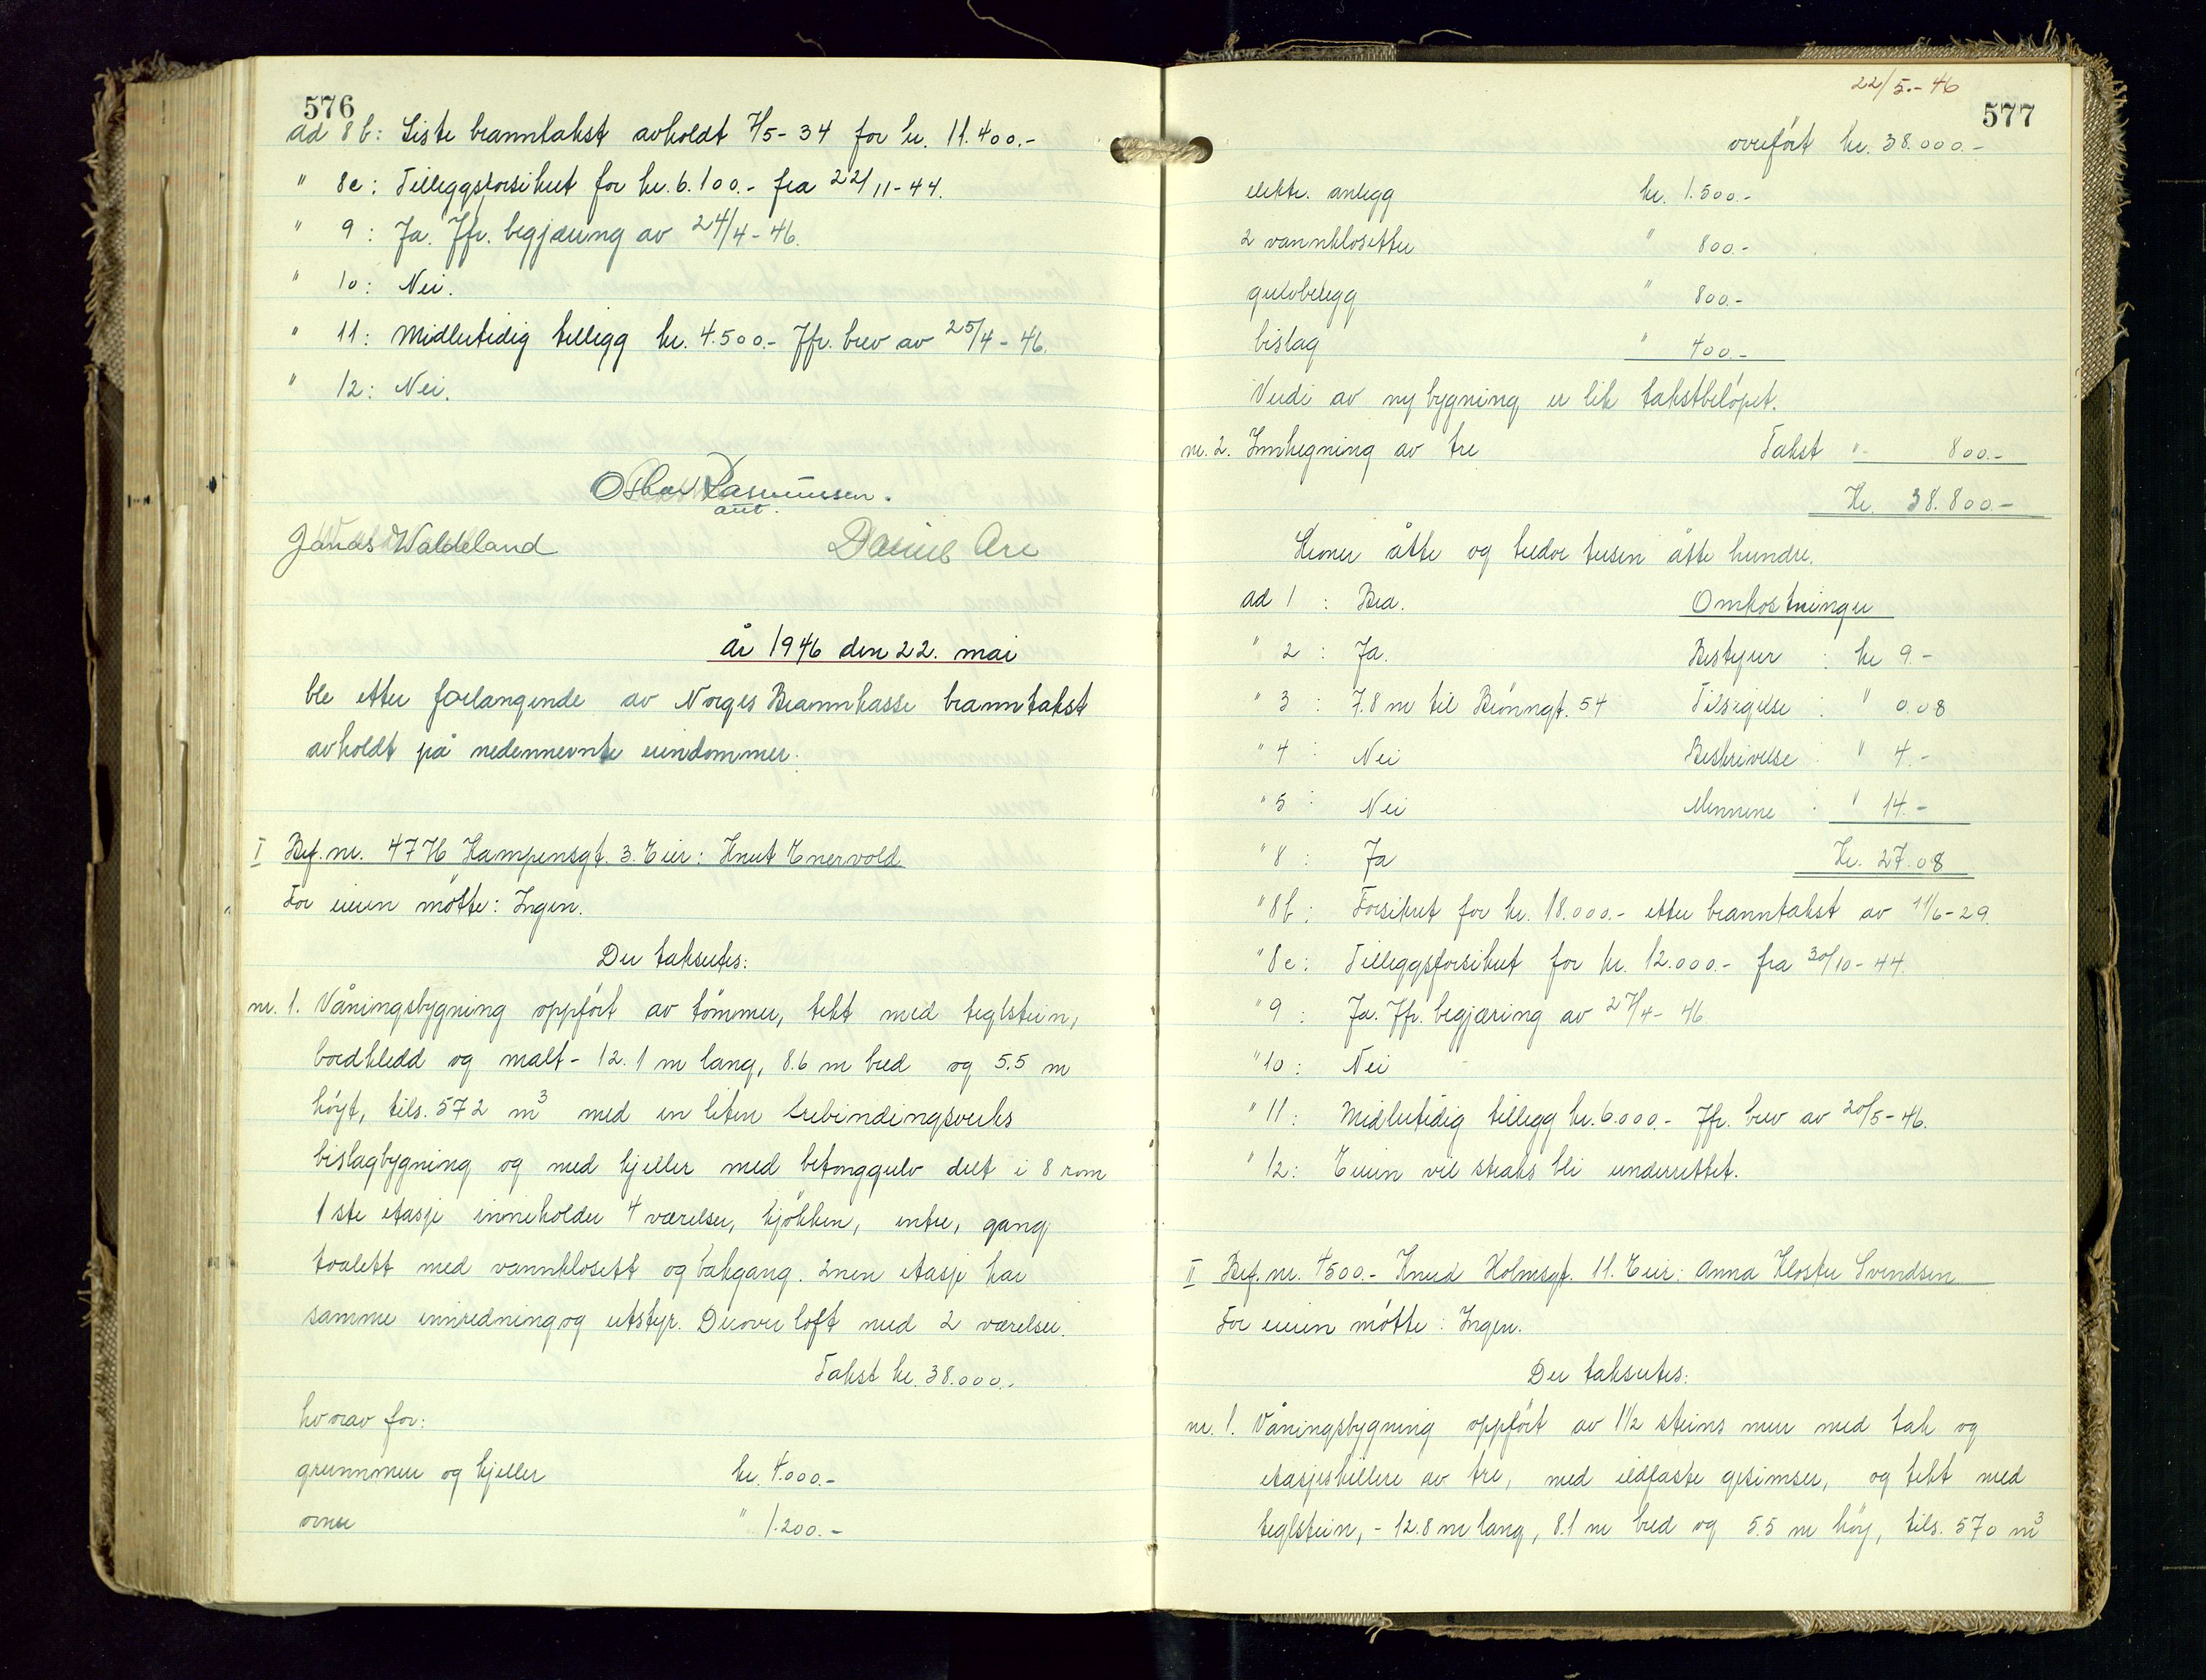 576
ad 8 b: Siste branntakst avholdt 7/5-34 for kr. 11.400.-
" 8c: Tilleggsforsikret for kr. 6.100.- fra 22/11-44.
" 9: Ja. Jfr. begjæring av 24/4-46.
" 10: Nei.
" 11: Midlertidig tillegg kr. 4.500.- Jfr. brev av 25/4-46.
" 12: Nei.
Oskar Rasmussen.
aut.
Jonas Waldeland
År 1946 den 22. mai
ble etter forlangende av Norges Brannkasse branntakst
avholdt på nedennevnte eiendommer:
I Bef. nr. 477b Kampensgt. 3. Eier: Knut Enervold
For eieren møtte: Ingen.
Der takseres:
nr. 1. Våningsbygning oppført av tømmer, tekt med teglstein,
bordkledd og malt - 12.1 m lang, 8.6 m bred og 5.5 m
høyt, tils. 572 m³ med en liten trebindingsverks
bislagbygning og med kjeller med betonggulv delt i 8 rom
1ste etasje inneholder 4 værelser, kjøkken, entre, gang,
toalett med vannklosett og bakgang. 2nen etasje har
samme innredning og utstyr. Derover loft med 2 værelser.
Takst kr. 38.000.-
hvorav for:
grunnmur og kjeller kr. 4.000.-
ovner " 1.200.-
22/5.-46
577
overført kr. 38.000.-
elektr. anlegg kr. 1.500.-
2 vannklosetter " 800.-
gulvbelegg " 800.-
bislag " 400.-
Verdi av ny bygning er lik takstbeløpet.
nr. 2. Innhegning av tre Takst " 800.-
Kr. 38.800.-
Kroner åtte og tredve tusen åtte hundre.
ad 1 : Bra. Omkostninger
" 2 : Ja. Bestyrer : kr 9.-
" 3 : 7.8 m til Brönngt. 54 Tilsigelse : " 0.08
" 4 : Nei Beskrivelse : " 4.-
" 5 : Nei Mennene : " 14.-
" 8 : Ja Kr. 27.08
" 8b : Forsikret for kr. 18.000.- etter branntakst av 11/6-29.
" 8c : Tilleggsforsikret for kr. 12.000.- fra 30/10-44.
" 9 : Ja. Jfr. begjæring av 27/4-46
" 10 : Nei
" 11 : Midlertidig tillegg kr. 6.000.- Jfr. brev av 20/5-46.
" 12 : Eieren vil straks bli underrettet.
II Bef. nr. 4500.- Knud Holmsgt. 11. Eier: Anna Kloster Svendsen
For eieren møtte: Ingen.
Der takseres:
nr. 1. Våningsbygning oppført av 1½ steins mur med tak og
etasjeskillere av tre, med ildfaste gesimser, og tekt med
teglstein, - 12.8 m lang, 8.1 m bred og 5.5 m høy, tils. 570 m³